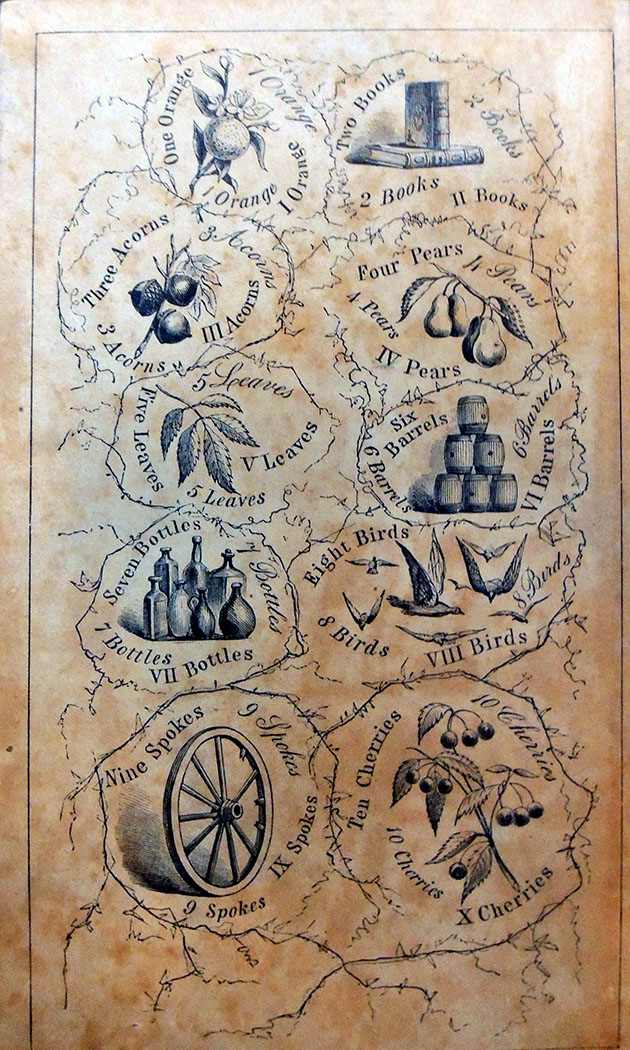 One Orange
1 Orange
1 Orange
I Orange
Two Books
2 Books
2 Books
II Books
Three Acorns
3 Acorns
3 Acorns
III Acorns
Four Pears
4 Pears
4 Pears
IV Pears
Five Leaves
5 Leaves
5 Leaves
V Leaves
Six
Barrels
6 Barrels
6 Barrels
VI Barrels
Seven Bottles
7 Bottles
7 Bottles
VII Bottles
Eight Birds
8 Birds
8 Birds
VIII Birds
Nine Spokes
9 Spokes
9 Spokes
IX Spokes
Ten Cherries
10 Cherries
10 Cherries
X Cherries